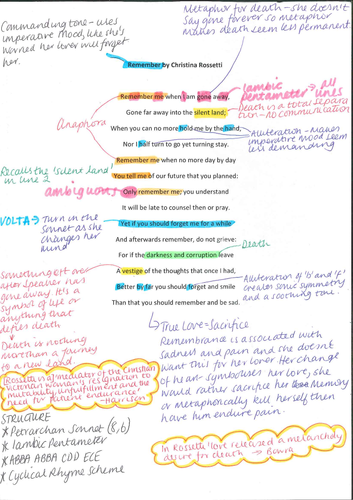 Commanding tone - uses
imperative mood, like she's
worried her lover will forget
her.
Metaphor for death - she doesn't
say gone forever so metaphor
makes death seem less permanent
Remember by Christina Rossetti
Remember me when I am gone away,
Gone far away into the silent land;
When you can no more hold me by the hand,
Nor I half turn to go yet turning stay.
Remember me when no more day by day
You tell me of our future that you planned:
Only remember me; you understand
It will be late to counsel then or pray.
Yet if you should forget me for a while
And afterwards remember, do not grieve:
For if the darkness and corruption leave
A vestige of the thoughts that once I had,
Better by far you should forget and smile
Than that you should remember and be sad.
iambic
pentameter → all
lines
Death is a total separa
tion - no communication
Anaphora
Alliteration - makes
imperative mood seem
less demanding
Recalls the 'silent land'
in line 2
ambiguous
VOLTA → Turn in the
sonnet as she
changes her
mind
Death
Something left over
after speaker has
gone away. It's a
symbol of life or
anything that
defies death
↓ Death is nothing
more than a journey
to a new land
Alliteration of 'b' and 'f'
creates sonic symmetry
and a soothing tone.
↳ True Love = Sacrifice
Remembrance is associated with
sadness and pain and she doesn't
want this for her lover. Her change
of heart symbolises her love, she
would rather sacrifice her memory
or metaphorically kill herself then
have him endure pain.
'Rossetti is a mediator of the Christian
Victorian woman's resignation to
mutability, unfulfillment and the
need for patient endurance'
- Harrison
STRUCTURE
* Petrarchan Sonnet (8,6)
* Iambic Pentameter
* ABBA ABBA CDD ECE
* Cyclical Rhyme Scheme
In Rossetti 'love released a melancholy
desire for death' → Bowra